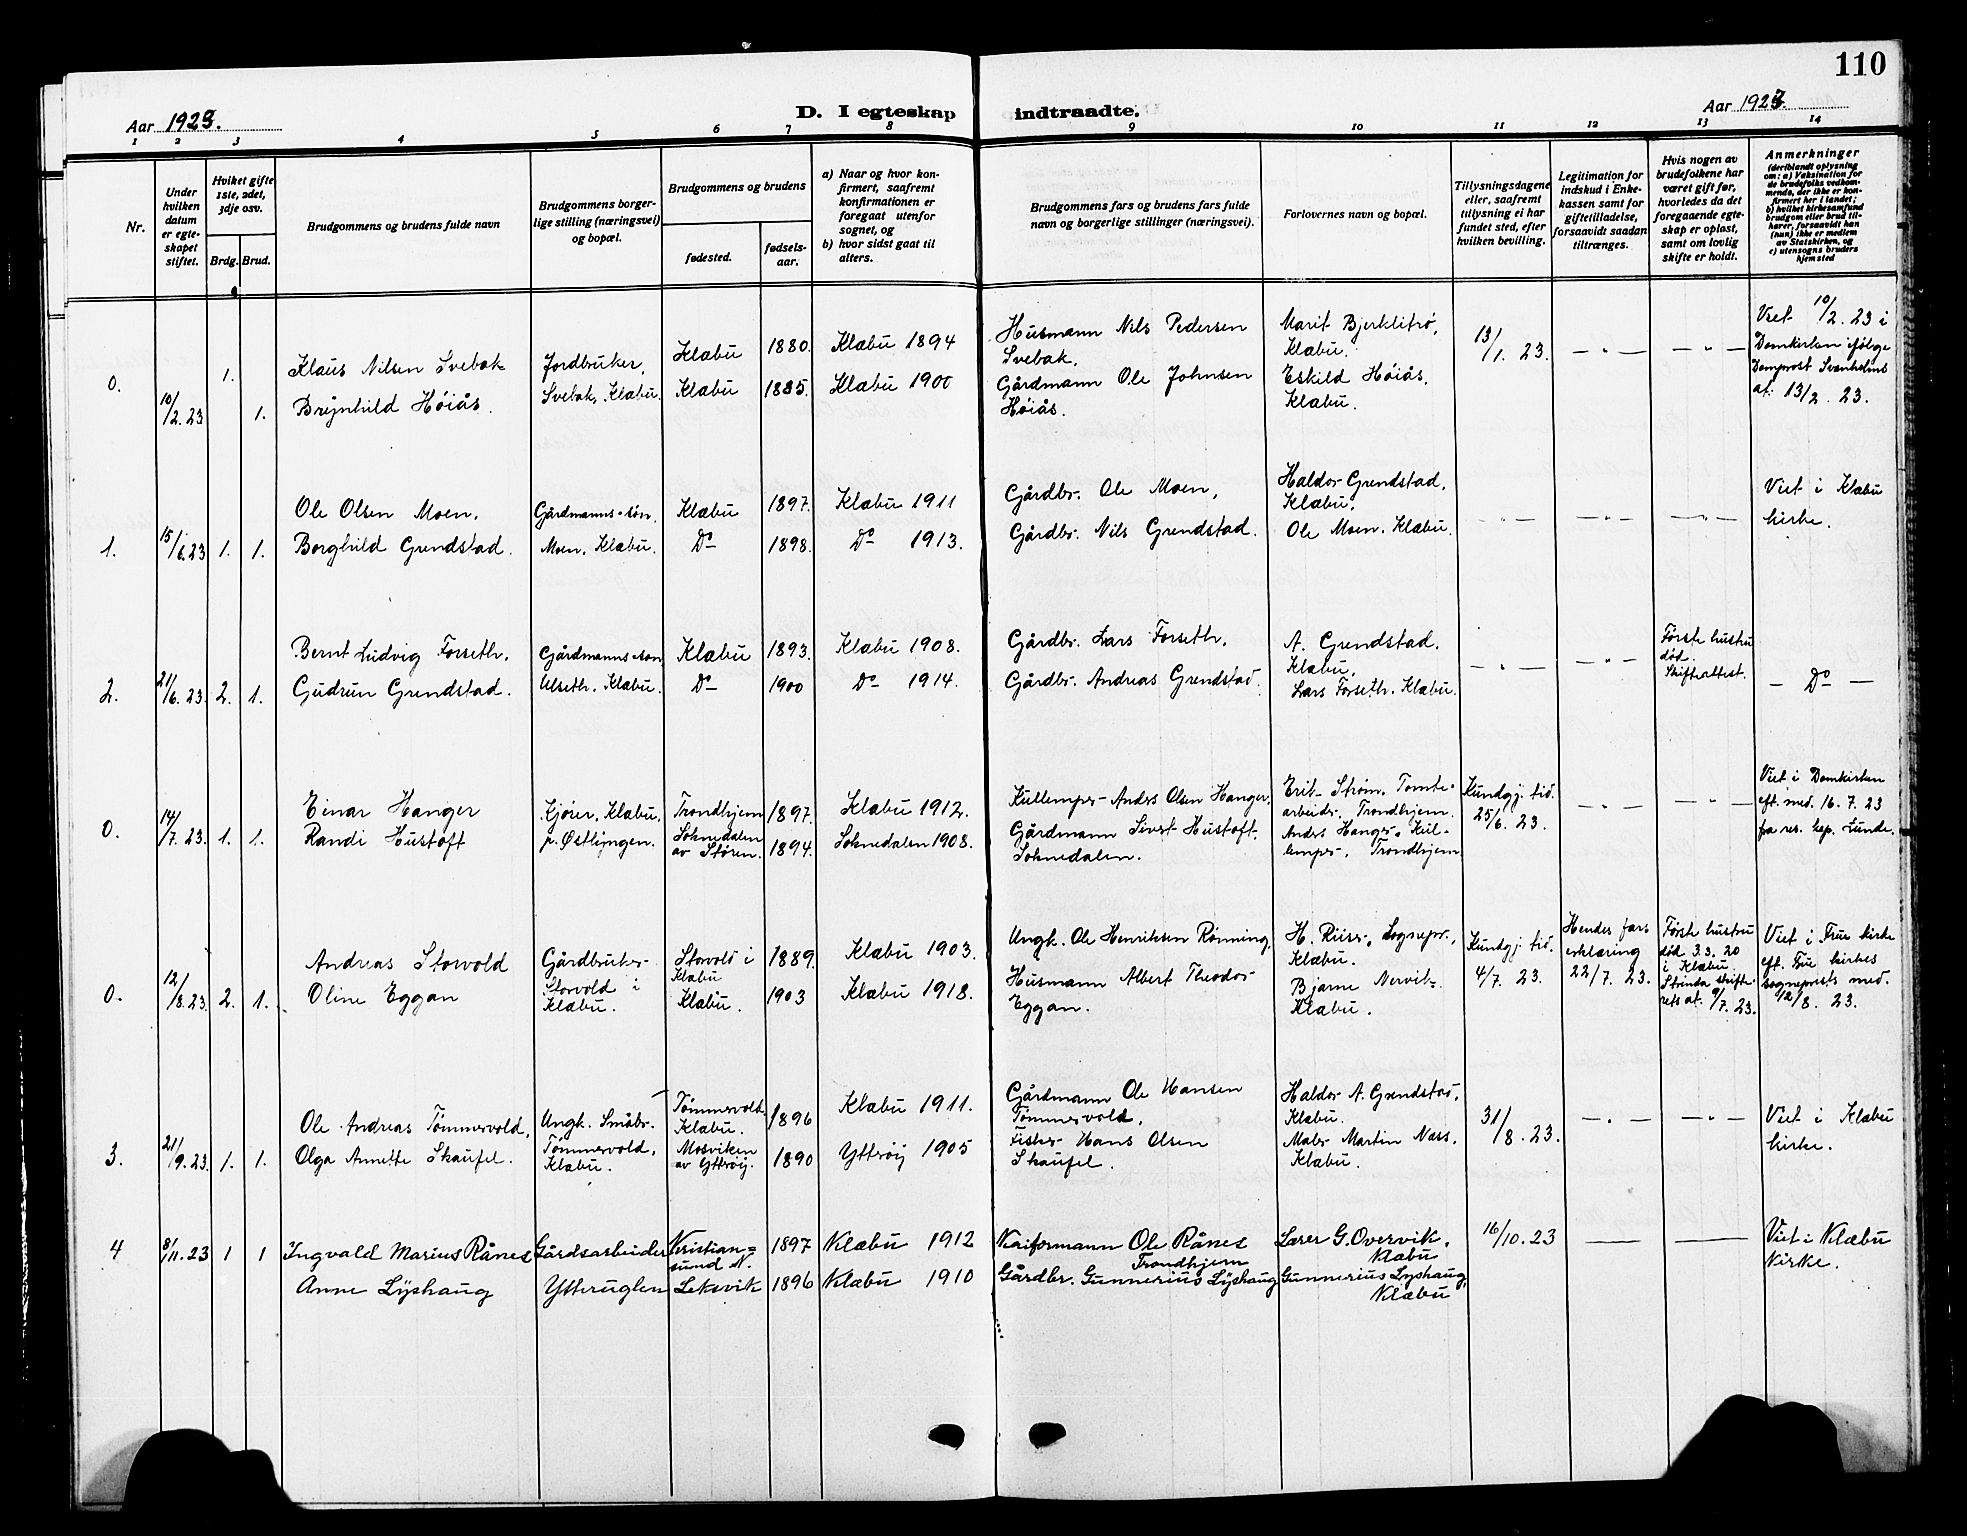 110
Aar 1923.
D. I egteskap indtraadte.
Aar 1923.
1 2 3 4 5 6 7 8 9 10 11 12 13 14
Nr.
Under hvilken datum er egteskapet stiftet.
Hvilket gifte 1ste, 2det, 3dje osv.
Brdg. Brud.
Brudgommens og brudens fulde navn
Brudgommens borgerlige stilling (næringsvei) og bopæl.
Brudgommens og brudens
fødested.
fødselsaar.
a) Naar og hvor konfirmert, saafremt konfirmationen er foregaat utenfor sognet, og
b) hvor sidst gaat til alters.
Brudgommens fars og brudens fars fulde navn og borgerlige stillinger (næringsvei).
Forlovernes navn og bopæl.
Tillysningsdagene eller, saafremt tillysning ei har fundet sted, efter hvilken bevilling.
Legitimation for indskud i Enkekassen samt for giftetilladelse, forsaavidt saadan tiltrænges.
Hvis nogen av brudefolkene har været gift før, hvorledes da det foregaaende egteskap er opløst, samt om lovlig skifte er holdt.
Anmerkninger
(deriblandt oplysning om: a) Vaksination for de brudefolks vedkommende, der ikke er konfirmert her i landet; b) hvilket kirkesamfund brudgom eller brud tilhører, forsaavidt han (hun) ikke er medlem av Statskirken, og c) utensogns bruders hjemsted
0. 10/2. 23 1. 1.
Klaus Nilsen Svebak
Brynhild Høiås.
Jordbruker,
Svebak, Klæbu.
Klæbu 1880. Klæbu 1894
Klæbu 1885. Klæbu 1900
Husmann Nils Pedersen
Svebak.
Gårdmann Ole Johnsen
Høiås.
Marit Bjerklitrø,
Klæbu.
Eskild Høiås,
Klæbu.
13/1. 23.
— " — — " —
Viet 10/2. 23 i
Domkirken ifølge
Domprost Svenholms
at. 13/2. 23.
1. 15/6. 23 1. 1.
Ole Olsen Moen.
Borghild Grendstad.
Gårdmanns-søn.
Moen, Klæbu.
Klæbu 1897. Klæbu 1911
Do 1898. Do 1913.
Gårdbr. Ole Moen,
Gårdbr. Nils Grendstad.
Haldor Grendstad,
Klæbu.
Ole Moen. Klæbu.
— " — — " — — " —
Viet i Klæbu
kirke.
2. 21/6. 23. 2. 1.
Bernt Ludvig Forseth.
Gudrun Grendstad.
Gårdmanns-søn
Ulseth. Klæbu.
Klæbu 1893. Klæbu 1908.
Do 1900 Do 1914.
Gårdbr. Lars Forseth.
Gårdbr. Andreas Grendstad.
A. Grendstad.
Klæbu.
Lars Forseth. Klæbu.
— " — — " —
Første hustru
død.
Skifteattest.
— Do —
0. 14/7. 23. 1. 1.
Einar Hanger
Randi Hustoft
Kjører, Klæbu,
p. Østlyngen.
Trondhjem 1897. Klæbu 1912.
Soknedalen
av Støren. 1894. Soknedalen 1908.
Kullemper Anders Olsen Hanger.
Gårdmann Sivert Hustoft.
Soknedalen.
Erik Strøm. Tomte-
arbeider. Trondhjem.
Anders Hanger. Kul-
lemper. Trondhjem
Kundgj. tid.
25/6. 23.
— " — — " —
Viet i Domkirken
eft. med. 16. 7. 23
fra res. kap. Lunde.
0. 12/8. 23. 2. 1.
Andreas Storvold
Oline Eggan
Gårdbruker
Storvold i
Klæbu.
Storvold i
Klæbu 1889. Klæbu 1903.
Klæbu. 1903 Klæbu 1918.
Ungk. Ole Henriksen Rønning.
Husmann Albert Theodor
Eggan.
H. Riise, Sognepr.,
Klæbu.
Bjarne Nervik
Klæbu.
Kundgj. tid.
4/7. 23.
Hendes fars
erklæring
22/7. 23.
Første hustru
død 3.3. 20
i Klæbu.
Strinda skifte-
rets at. 9/7. 23.
Viet i Frue kirke
eft. Frue kirkes
sogneprests med.
12/8. 23.
3. 21/9. 23. 1. 1.
Ole Andreas Tømmervold,
Olga Annette Skaufel.
Ungk. Småbr.
Tømmervold,
Klæbu.
Tømmervold
Klæbu. 1896 Klæbu 1911.
Mosviken
av Ytterøy. 1890 Ytterøy 1905
Gårdmann Ole Hansen
Tømmervold,
Fisker Hans Olsen
Skaufel.
Haldor A. Grendstad,
Klæbu.
Maler Martin Næss,
Klæbu.
31/8. 23.
— " — — " —
Viet i Klæbu
kirke.
4 8/11. 23 1 1
Ingvald Marius Rånes
Anne Lyshaug
Gårdsarbeider
Ytteruglen
Kristian=
sund N. 1897 Klæbu 1912
Leksvik 1896 Klæbu 1910
Kaiformann Ole Rånes
Trondhjem
Gårdbr. Gunnerius Lyshaug
Lærer G. Overvik,
Klæbu
Gunnerius Lyshaug,
Klæbu
16/10. 23
— —
Viet i Klæbu
Kirke.